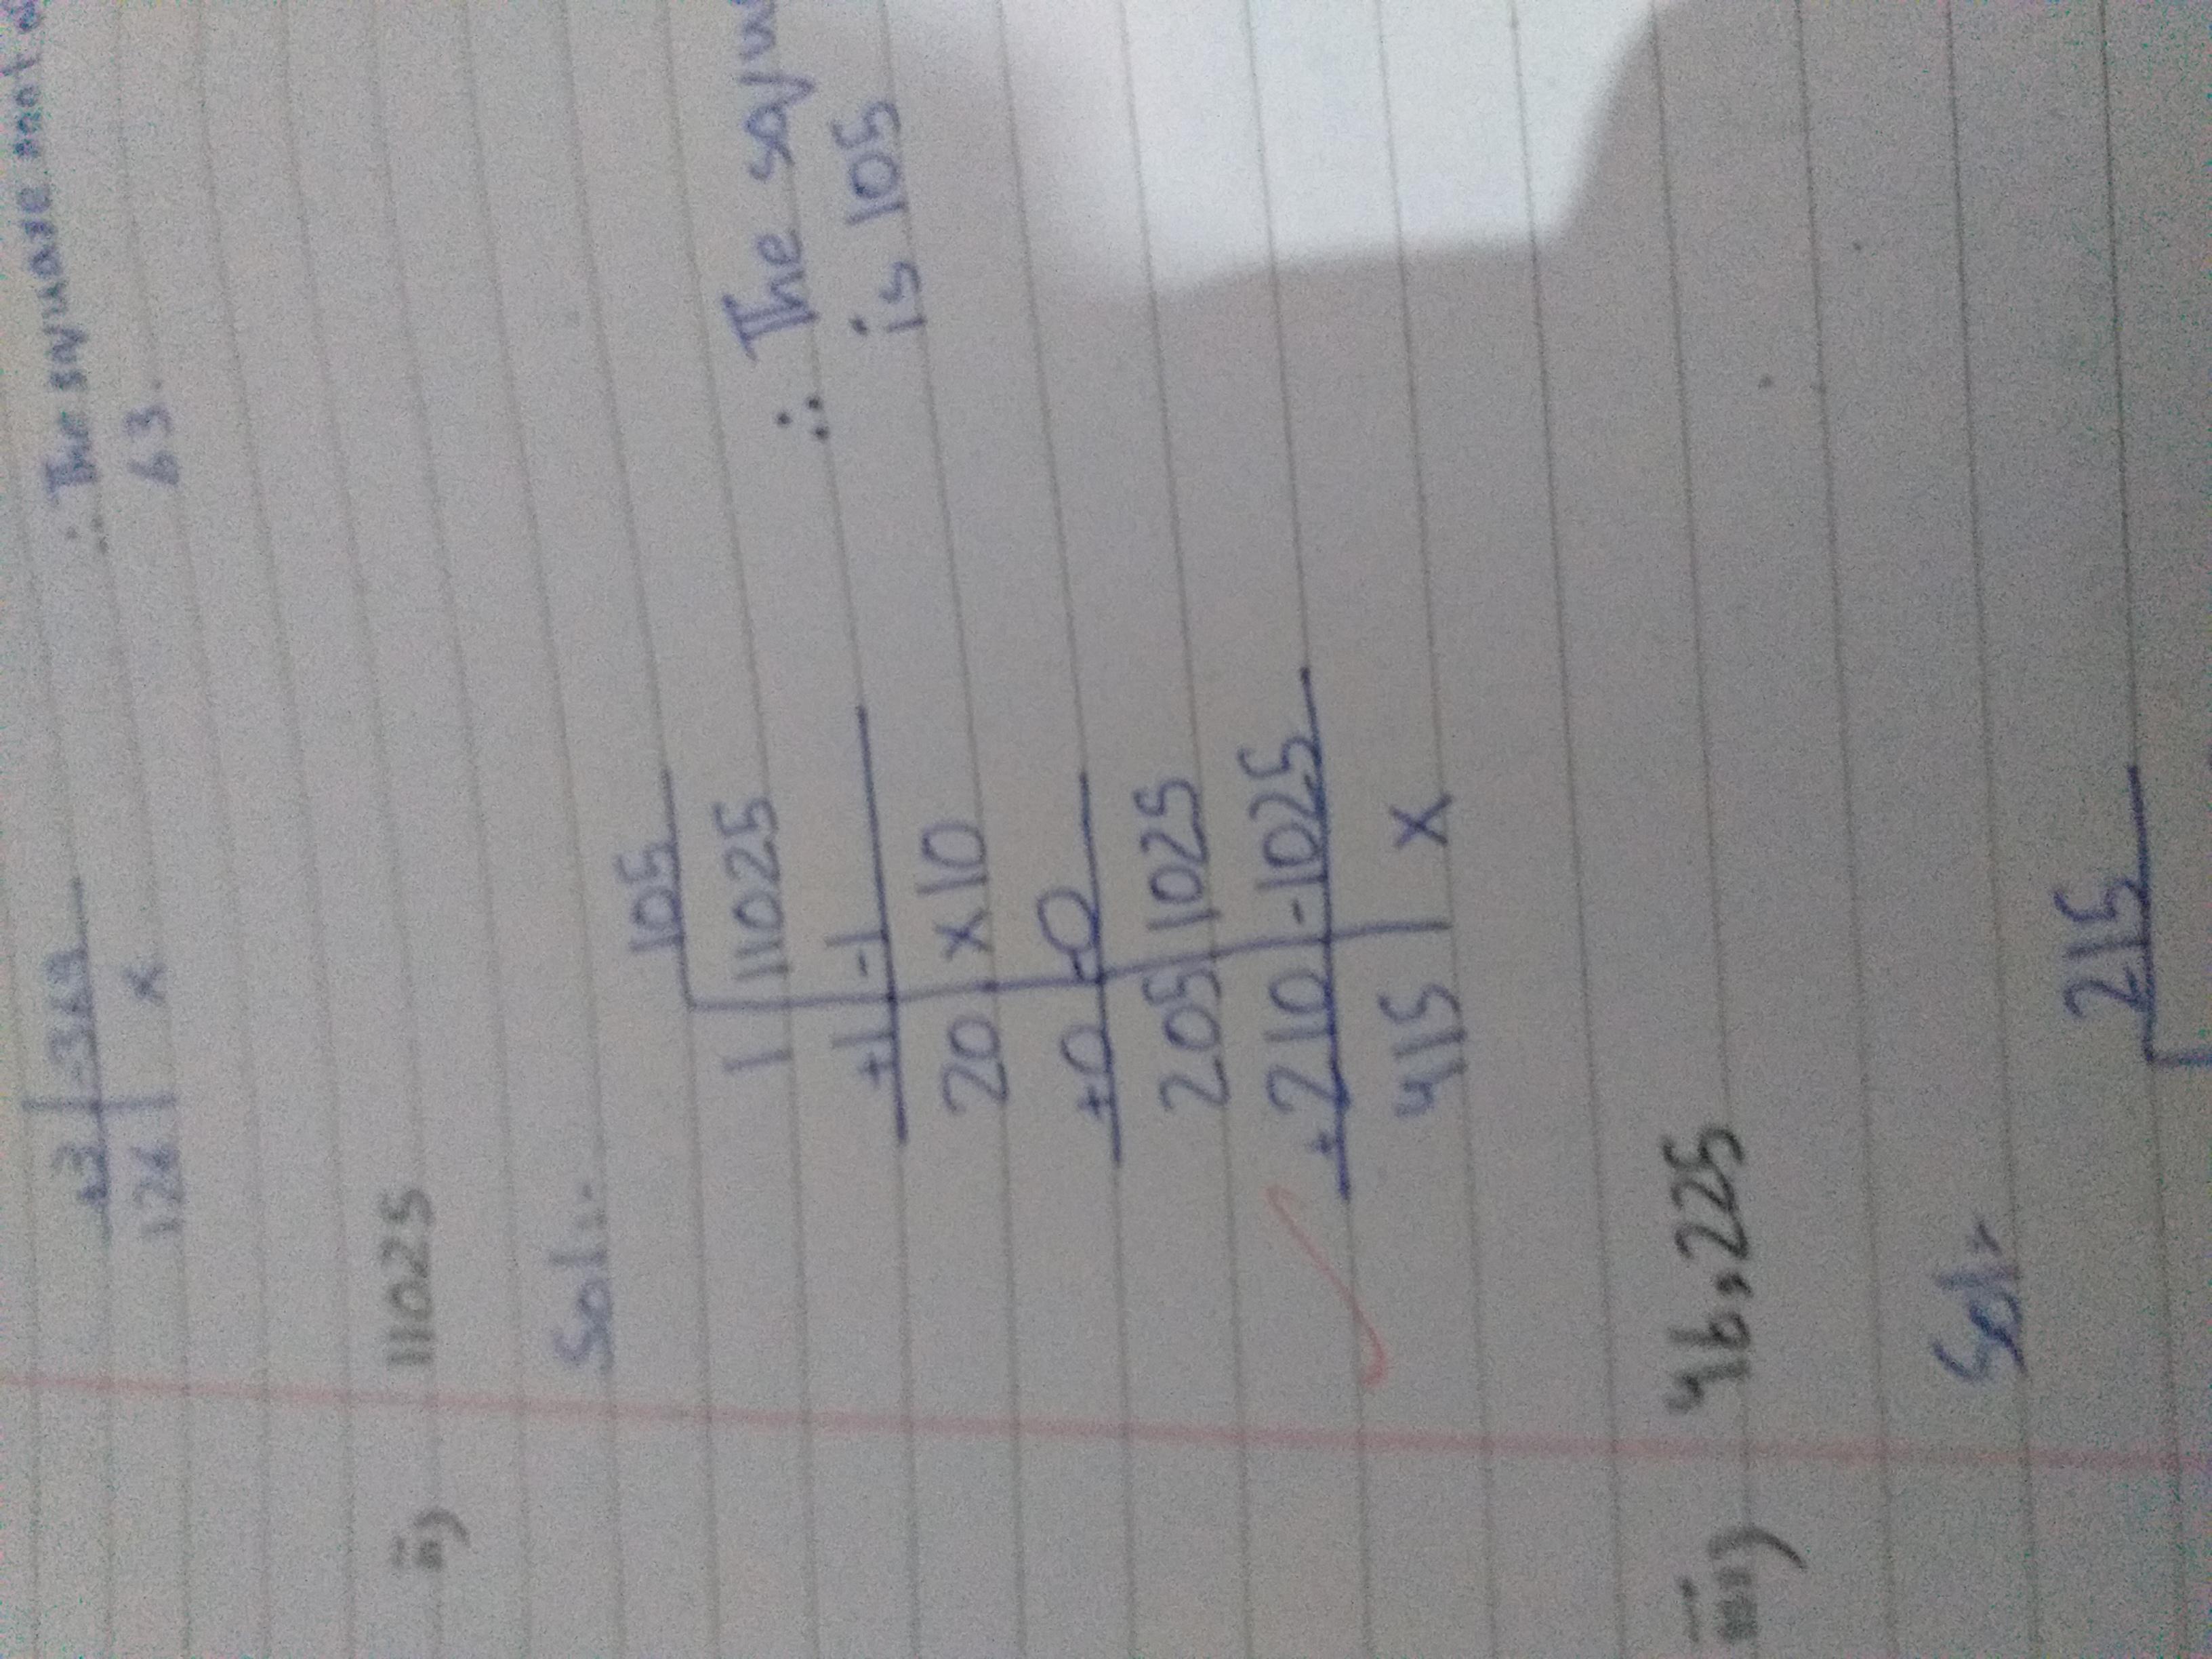 +3 -369
126 x
∴ The square root of
63.
ii) 11025
Sol:-
105
1 11025
+1 -1
20 x10
+0 -0
205 1025
+210 -1025
415 x
∴ The squ
is 105
iii) 46,225
Sol:-
215